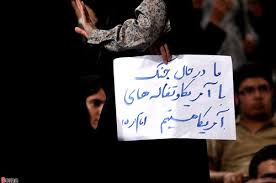 ما در حال جنگ
با آمریکا و تفاله های
آمریکا هستیم
امام(ره)